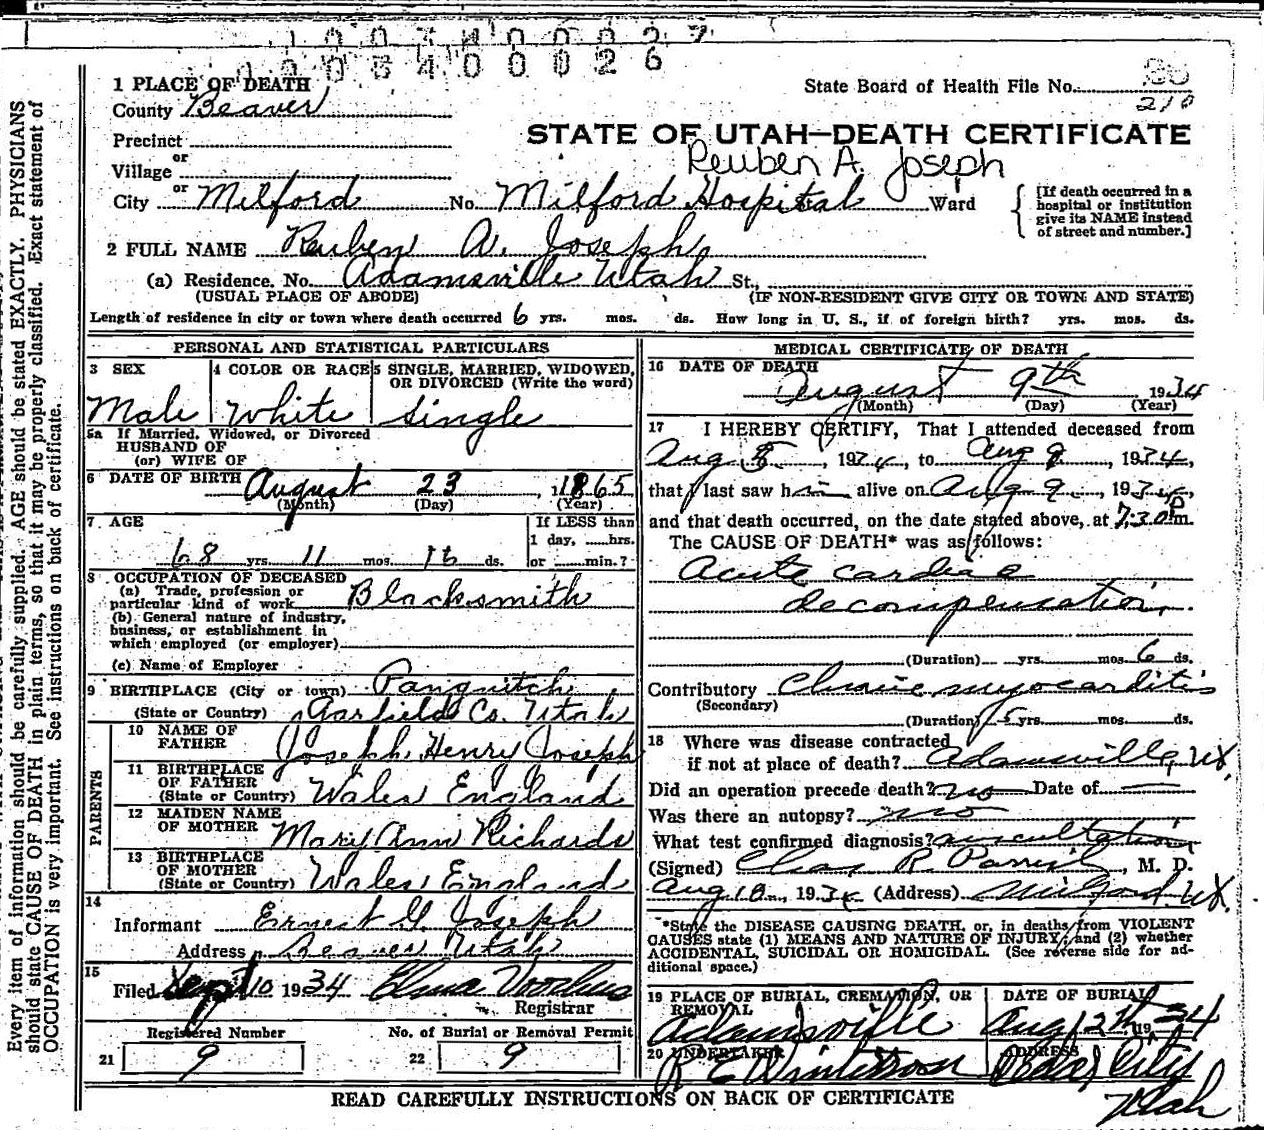 0 0 3 4 0 0 0 2 6
1 PLACE OF DEATH
State Board of Health File No.
210
County Beaver
STATE OF UTAH—DEATH CERTIFICATE
Precinct
Reuben A. Joseph
or
Village
or
City Milford No. Milford Hospital Ward
[If death occurred in a hospital or institution give its NAME instead of street and number.]
2 FULL NAME Reuben A. Joseph
(a) Residence. No. Adamsville Utah St.,
(USUAL PLACE OF ABODE) (IF NON-RESIDENT GIVE CITY OR TOWN AND STATE)
Length of residence in city or town where death occurred 6 yrs. mos. ds. How long in U. S., if of foreign birth? yrs. mos. ds.
PERSONAL AND STATISTICAL PARTICULARS
3 SEX 4 COLOR OR RACE 5 SINGLE, MARRIED, WIDOWED,
OR DIVORCED (Write the word)
Male White Single
5a If Married, Widowed, or Divorced
HUSBAND OF
(or) WIFE OF
6 DATE OF BIRTH August 23, 1865
(Month) (Day) (Year)
7 AGE If LESS than
1 day, ......hrs.
68 yrs. 11 mos. 16 ds. or ......min.?
8 OCCUPATION OF DECEASED
(a) Trade, profession or
particular kind of work Blacksmith
(b) General nature of industry,
business, or establishment in
which employed (or employer)
(c) Name of Employer
9 BIRTHPLACE (City or town) Panguitch
(State or Country) Garfield Co. Utah
PARENTS
10 NAME OF
FATHER Joseph Henry Joseph
11 BIRTHPLACE
OF FATHER
(State or Country) Wales England
12 MAIDEN NAME
OF MOTHER Mary Ann Richards
13 BIRTHPLACE
OF MOTHER
(State or Country) Wales, England
14
Informant Ernest G. Joseph
Address Beaver Utah
15
Filed Sept 10 1934
Registrar
Registered Number No. of Burial or Removal Permit
21 9 22 9
MEDICAL CERTIFICATE OF DEATH
16 DATE OF DEATH
August 9th 1934
(Month) (Day) (Year)
17 I HEREBY CERTIFY, That I attended deceased from
Aug , 1934, to Aug 9, 1934,
that I last saw him alive on Aug 9, 1934,
and that death occurred, on the date stated above, at 7:30 P m.
The CAUSE OF DEATH* was as follows:
Acute cardiac
decompensation.
(Duration) yrs. mos. 6 ds.
Contributory Chronic myocarditis
(Secondary)
(Duration) 5 yrs. mos. ds.
18 Where was disease contracted
if not at place of death? Adamsville, Ut.
Did an operation precede death? no Date of
Was there an autopsy? no
What test confirmed diagnosis? auscultation
(Signed) Chas R. Parrish, M. D.
Aug 10, 1934 (Address) Milford Ut.
*State the DISEASE CAUSING DEATH, or, in deaths from VIOLENT
CAUSES state (1) MEANS AND NATURE OF INJURY; and (2) whether
ACCIDENTAL, SUICIDAL OR HOMICIDAL. (See reverse side for ad-
ditional space.)
19 PLACE OF BURIAL, CREMATION, OR DATE OF BURIAL
REMOVAL
Adamsville Aug 12th, 1934
20 UNDERTAKER ADDRESS
City
Utah
READ CAREFULLY INSTRUCTIONS ON BACK OF CERTIFICATE
Every item of information should be carefully supplied. AGE should be stated EXACTLY. PHYSICIANS
should state CAUSE OF DEATH in plain terms, so that it may be properly classified. Exact statement of
OCCUPATION is very important. See instructions on back of certificate.